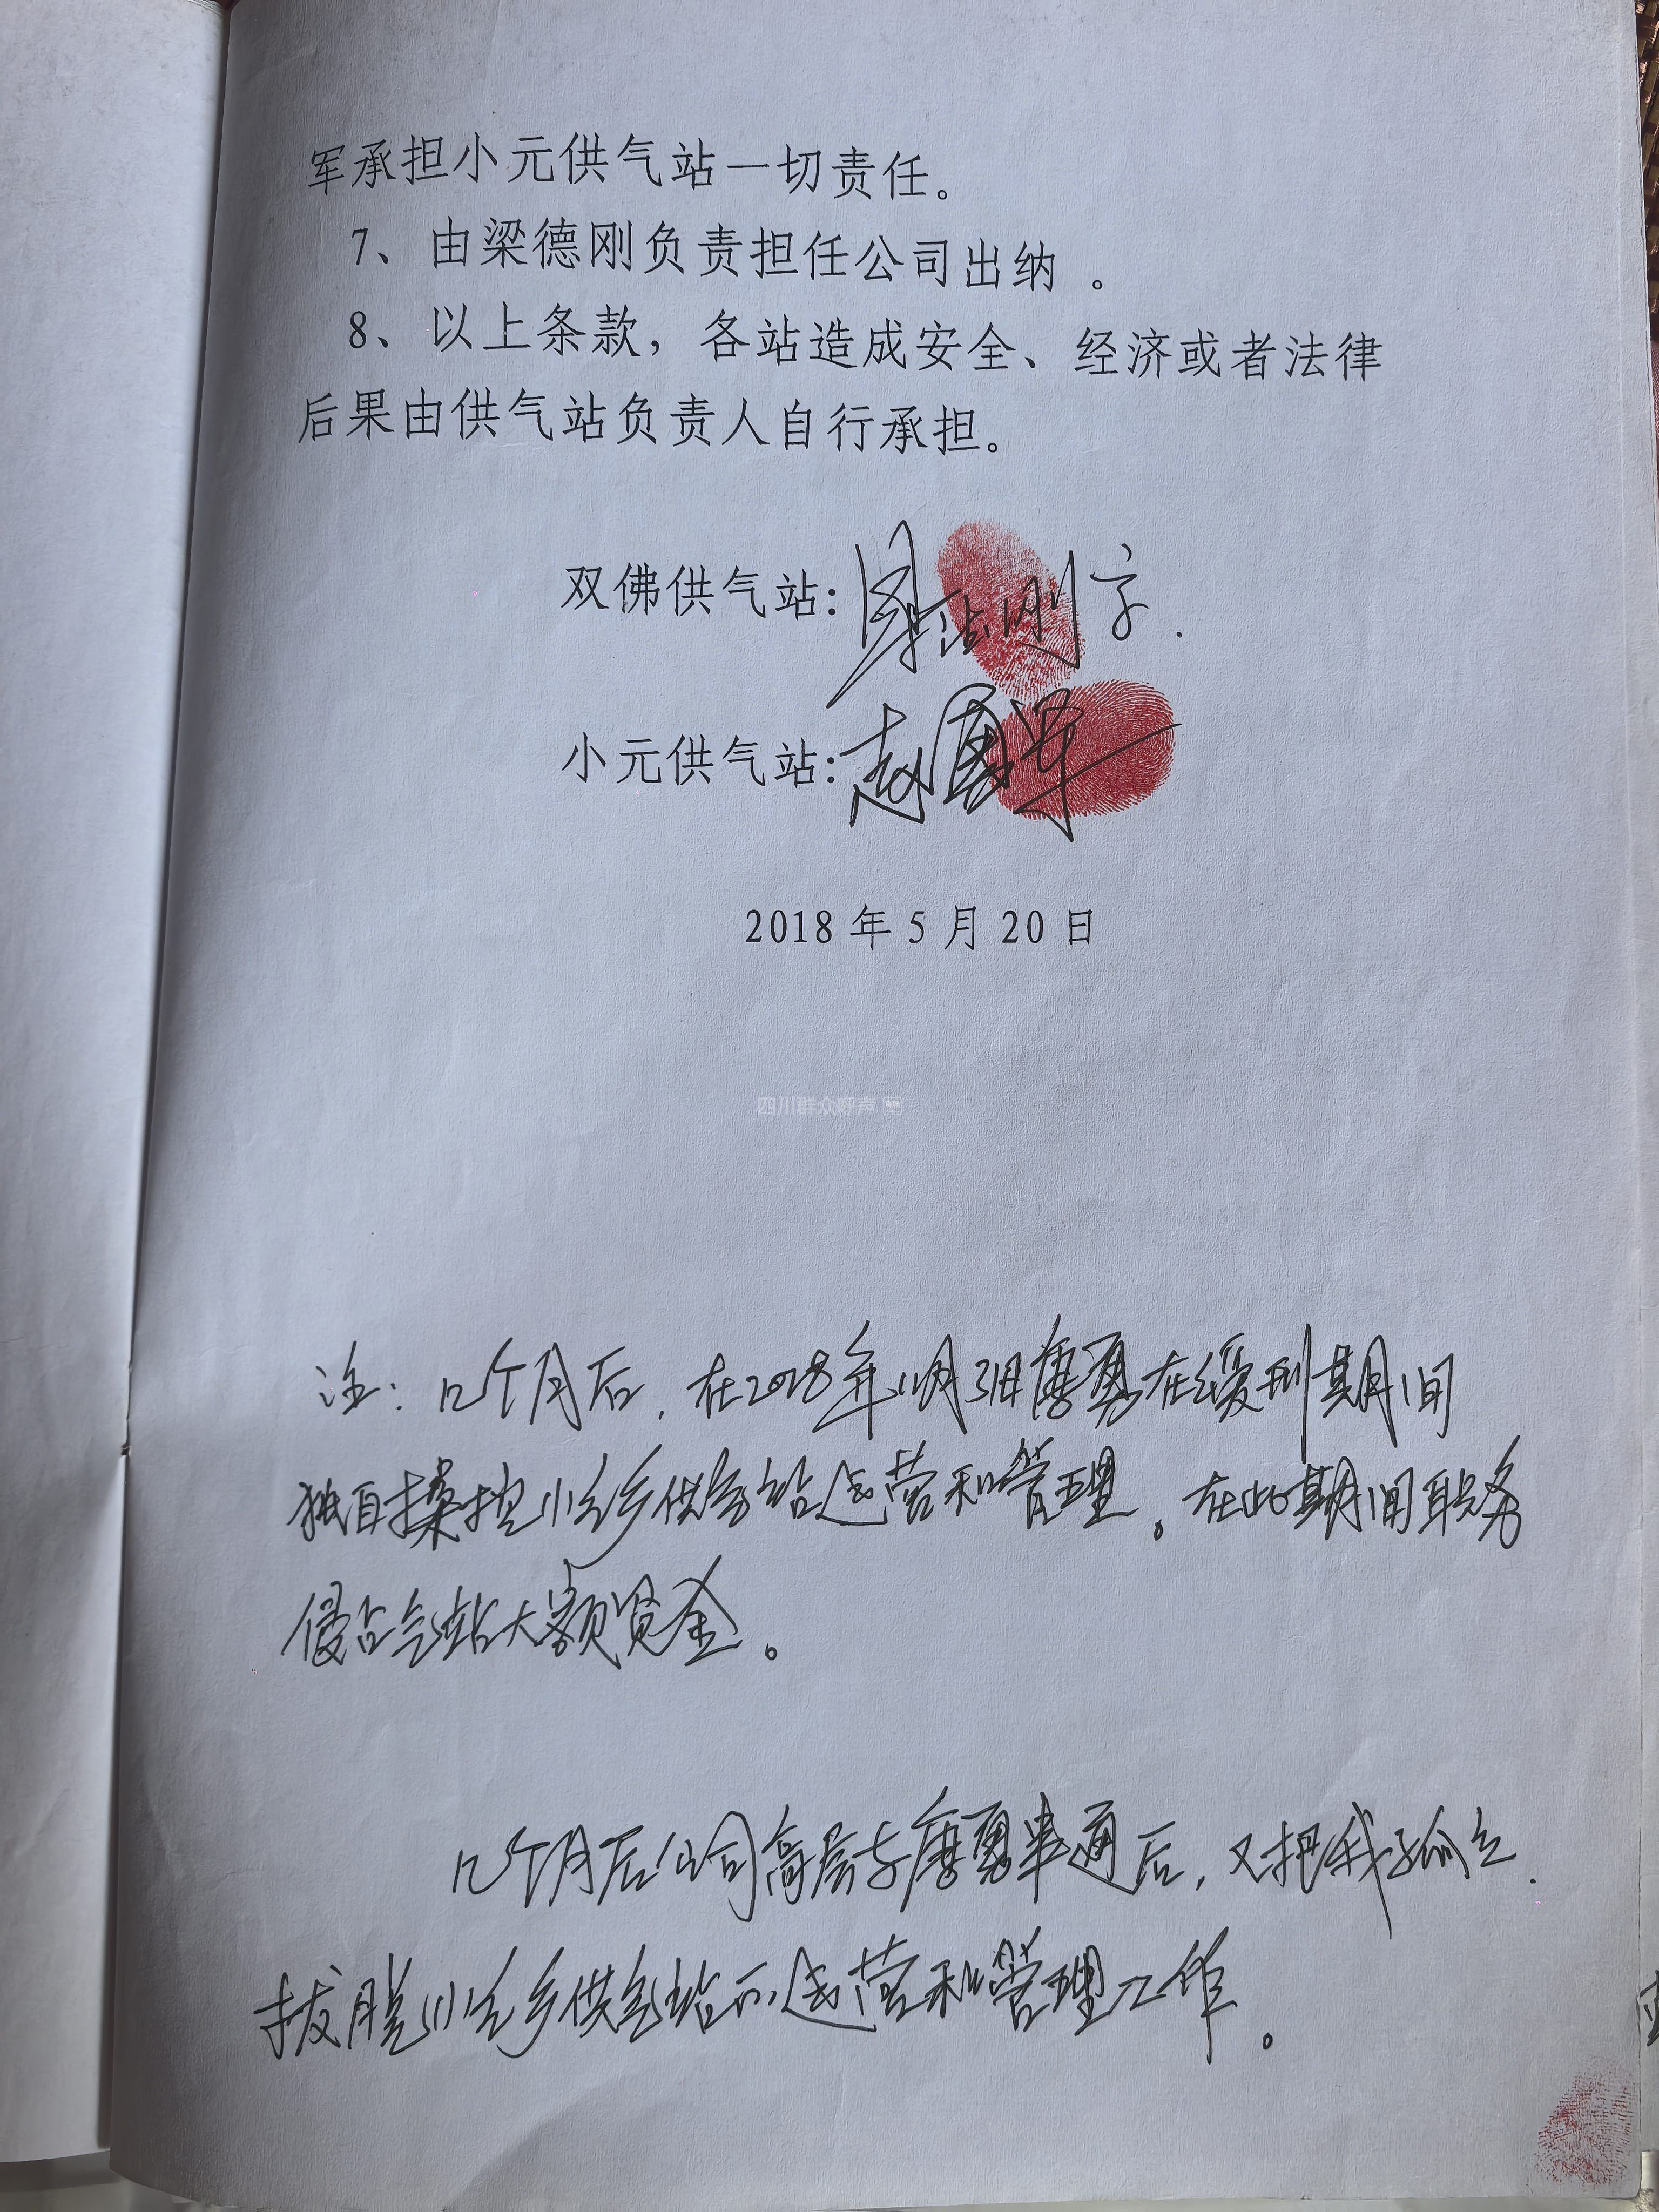 军承担小元供气站一切责任。
7、由梁德刚负责担任公司出纳 。
8、以上条款，各站造成安全、经济或者法律
后果由供气站负责人自行承担。
双佛供气站：
小元供气站：赵国军
2018 年 5 月 20 日
四川群众呼声
注：几个月后，在2018年 月 日唐勇在缓刑期间
独自操控小元乡供气站运营和管理。在此期间职务
侵占气站大额资金。
几个月后公司高层与唐勇串通后，又把我孤立.
拔脱小元乡供气站的运营和管理工作。